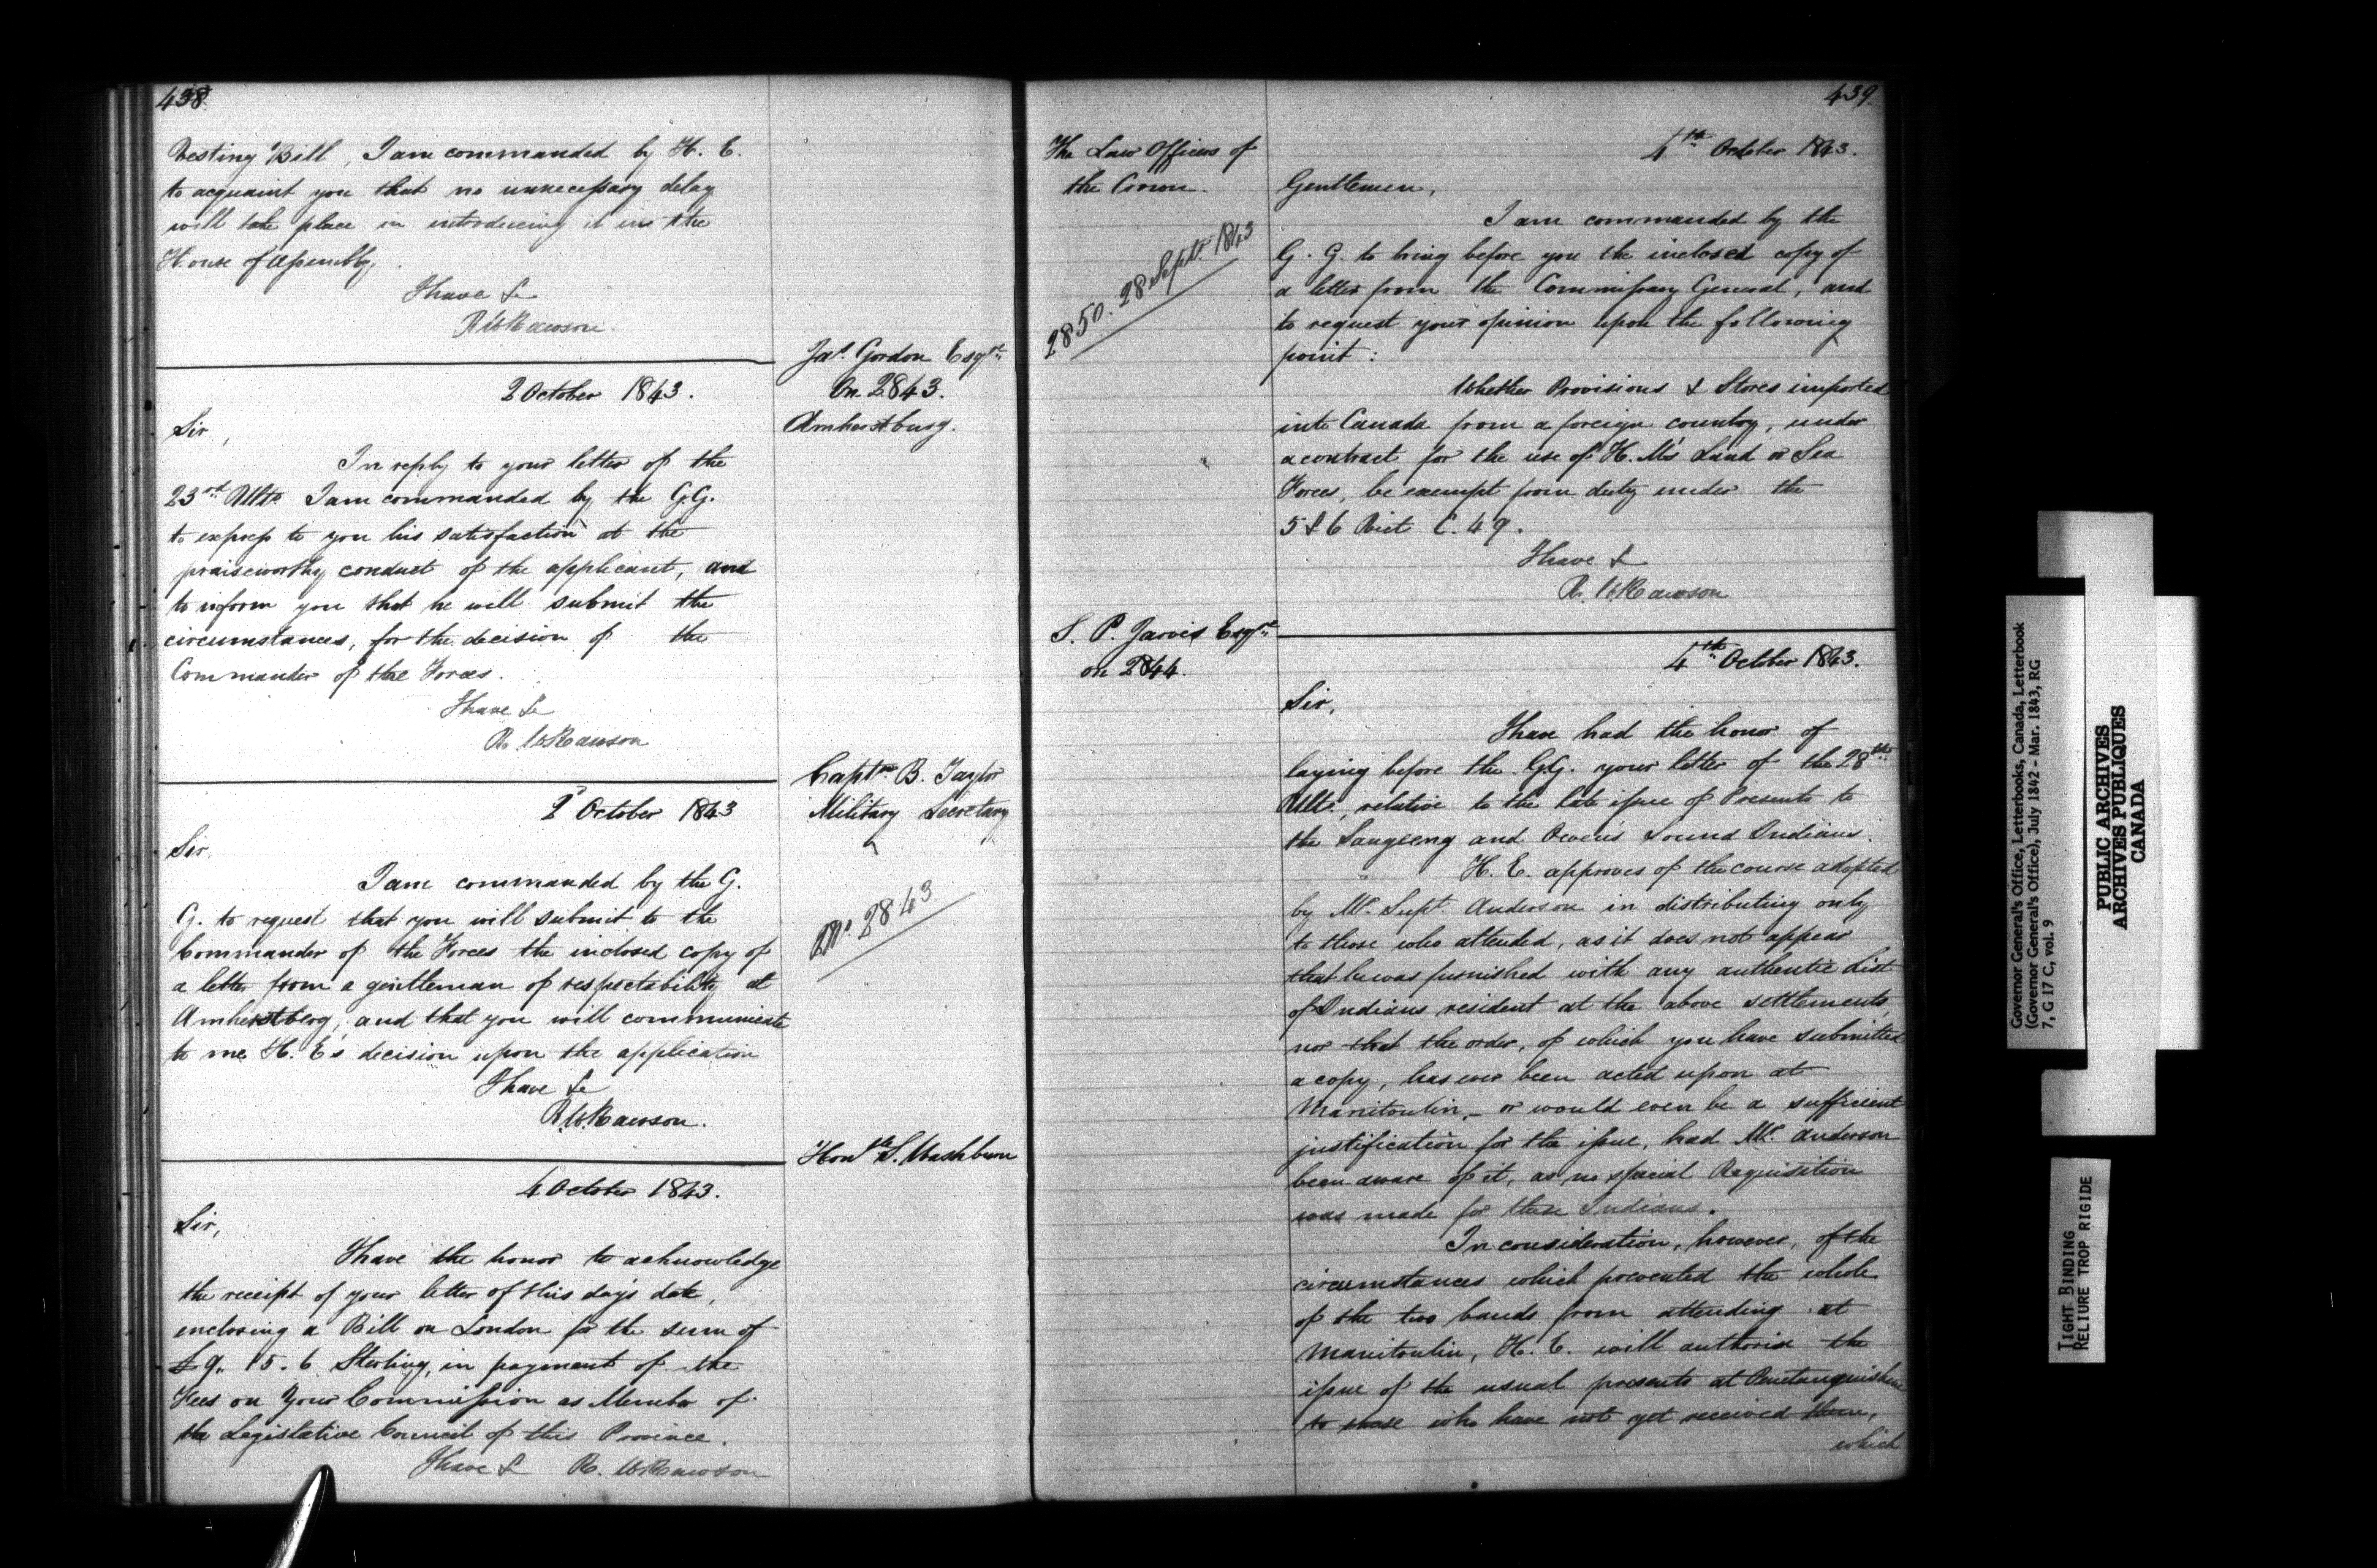 438
Vesting Bill, I am commanded by H. E.
to acquaint you that no unnecessary delay
will take place in introducing it in the
House of Assembly.
I have &c
R W Rawson.
Jas. Gordon Esqre
On 2843.
Amherstburg.
2 October 1843.
Sir,
In reply to your letter of the
23rd Ulto I am commanded by the G.G.
to express to you his satisfaction at the
praiseworthy conduct of the applicant, and
to inform you that he will submit the
circumstances, for the decision of the
Commander of the Forces.
I have &c
R. W Rawson
Captn B. Taylor
Military Secretary
No. 2843.
2 October 1843
Sir
I am commanded by the G.
G. to request that you will submit to the
Commander of the Forces the inclosed copy of
a letter from a gentleman of respectability at
Amherstberg, and that you will communicate
to me H. E's decision upon the application
I have &c
R. W. Rawson.
Honble S. Washburn
4 October 1843.
Sir,
I have the honor to acknowledge
the receipt of your letter of this day's date,
enclosing a Bill on London for the sum of
£9.. 15. 6 Sterling, in payment of the
Fees on Your Commission as Member of
the Legislative Council of this Province.
I have &c R. W Rawson
439.
The Law Officers of
the Crown.
2850. 28 Sept. 1843
4th October 1843.
Gentlemen,
I am commanded by the
G. G. to bring before you the inclosed copy of
a letter from the Commissary General, and
to request your opinion upon the following
point:
Whether Provisions & Stores imported
into Canada from a foreign country, under
a contract for the use of H. M's Land or Sea
Forces, be exempt from duty under the
5 & 6 Vict C. 49.
I have &
R. W Rawson
S. P. Jarvis Esqre
on 2844.
4th October 1843.
Sir,
I have had the honor of
laying before the G.G. your letter of the 28th
Ulto., relative to the late issue of Presents to
the Saugeeng and Owen's Sound Indians.
H. E. approves of the course adopted
by Mr. Supt. Anderson in distributing only
to those who attended, as it does not appear
that he was furnished with any authentic list
of Indians resident at the above settlements,
nor that the order, of which you have submitted
a copy, has ever been acted upon at
Manitoulin, - or would even be a sufficient
justification for the issue, had Mr. Anderson
been aware of it, as no special Requisition
was made for these Indians.
In consideration, however, of the
circumstances which prevented the whole
of the two bands from attending at
Manitoulin, H. E. will authorise the
issue of the usual presents at Penetanguishene
to those who have not yet received them,
which
Governor General's Office, Letterbooks, Canada, Letterbook
(Governor General's Office), July 1842 - Mar. 1843, RG
7, G 17 C, vol. 9
PUBLIC ARCHIVES
ARCHIVES PUBLIQUES
CANADA
TIGHT BINDING
RELIURE TROP RIGIDE